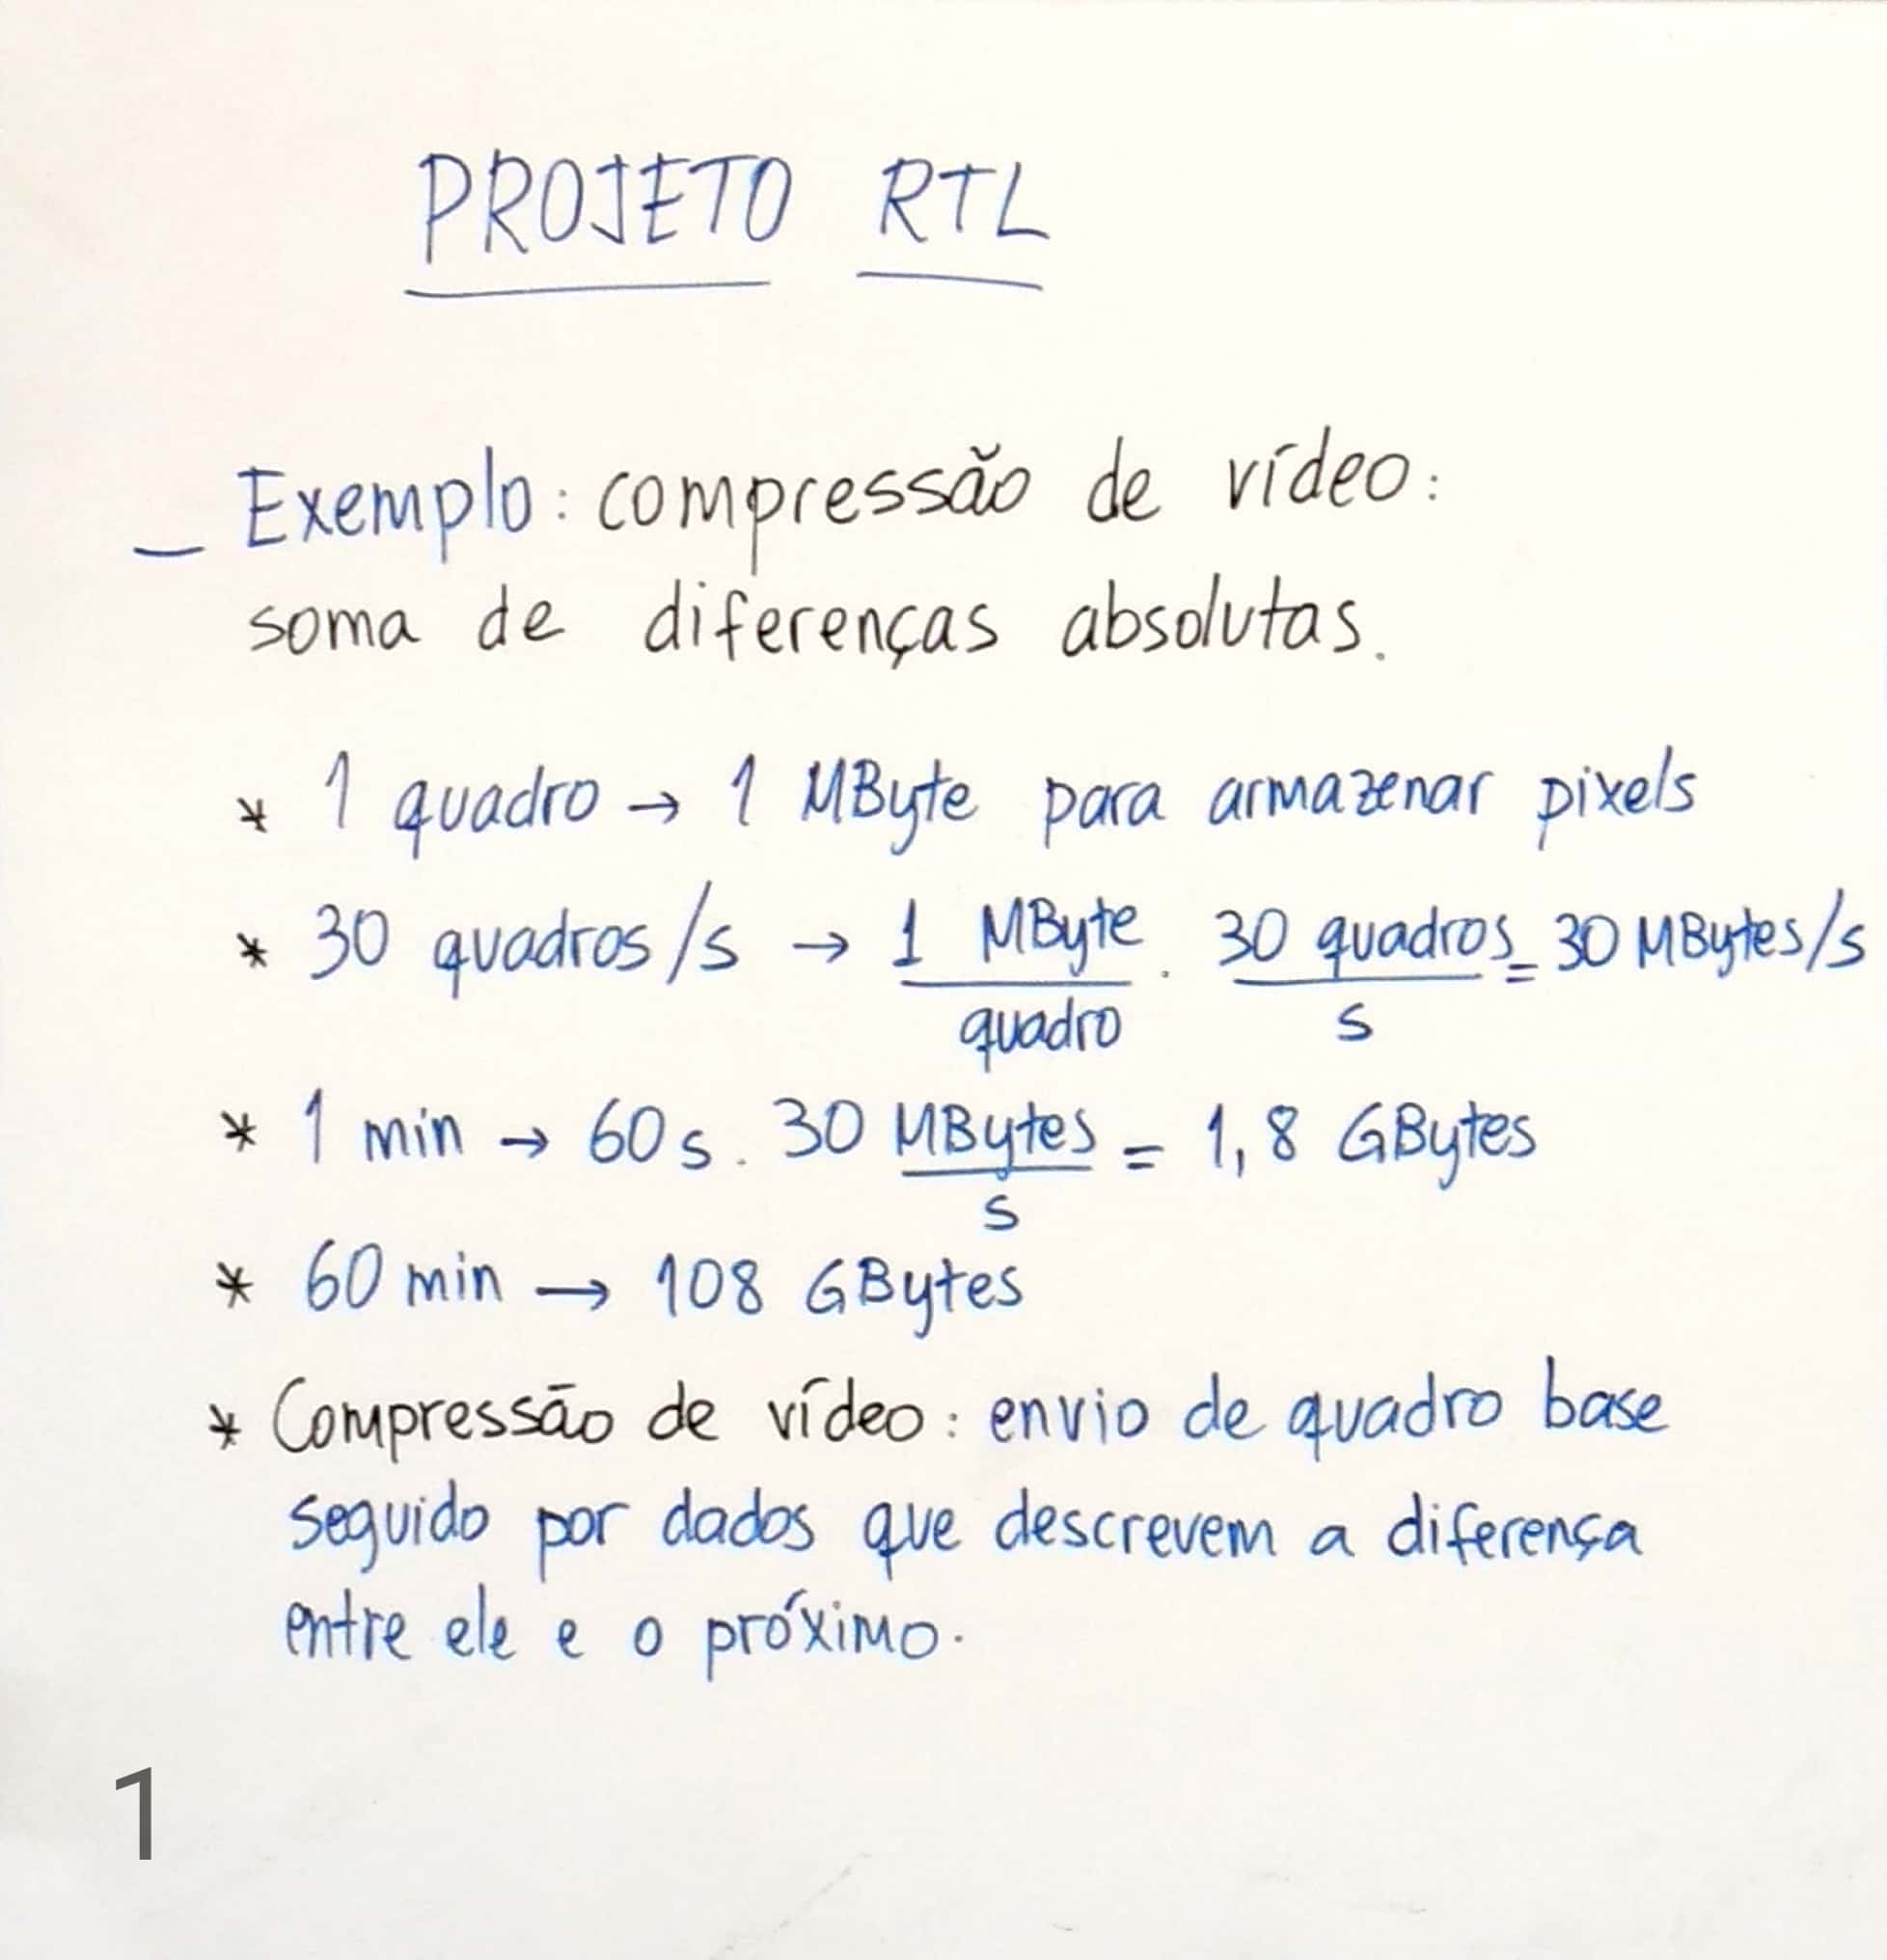 PROJETO RTL
_ Exemplo: compressão de vídeo:
soma de diferenças absolutas.
* 1 quadro → 1 MByte para armazenar pixels
* 30 quadros/s → 1 MByte . 30 quadros = 30 MBytes/s
quadro s
* 1 min → 60 s . 30 MBytes = 1,8 GBytes
s
* 60 min → 108 GBytes
* Compressão de vídeo: envio de quadro base
seguido por dados que descrevem a diferença
entre ele e o próximo.
1